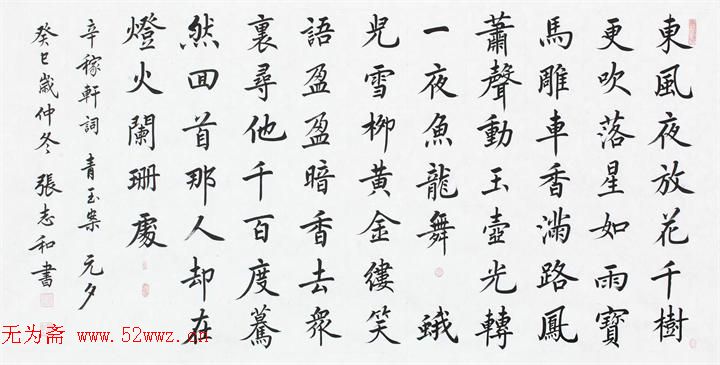 東風夜放花千樹
更吹落星如雨寶
馬雕車香滿路鳳
蕭聲動玉壺光轉
一夜魚龍舞 蛾
兒雪柳黃金縷笑
語盈盈暗香去衆
裏尋他千百度驀
然回首那人却在
燈火闌珊處
辛稼軒詞 青玉案 元夕
癸巳歲仲冬 張志和書
无为斋 www.52wwz.cn